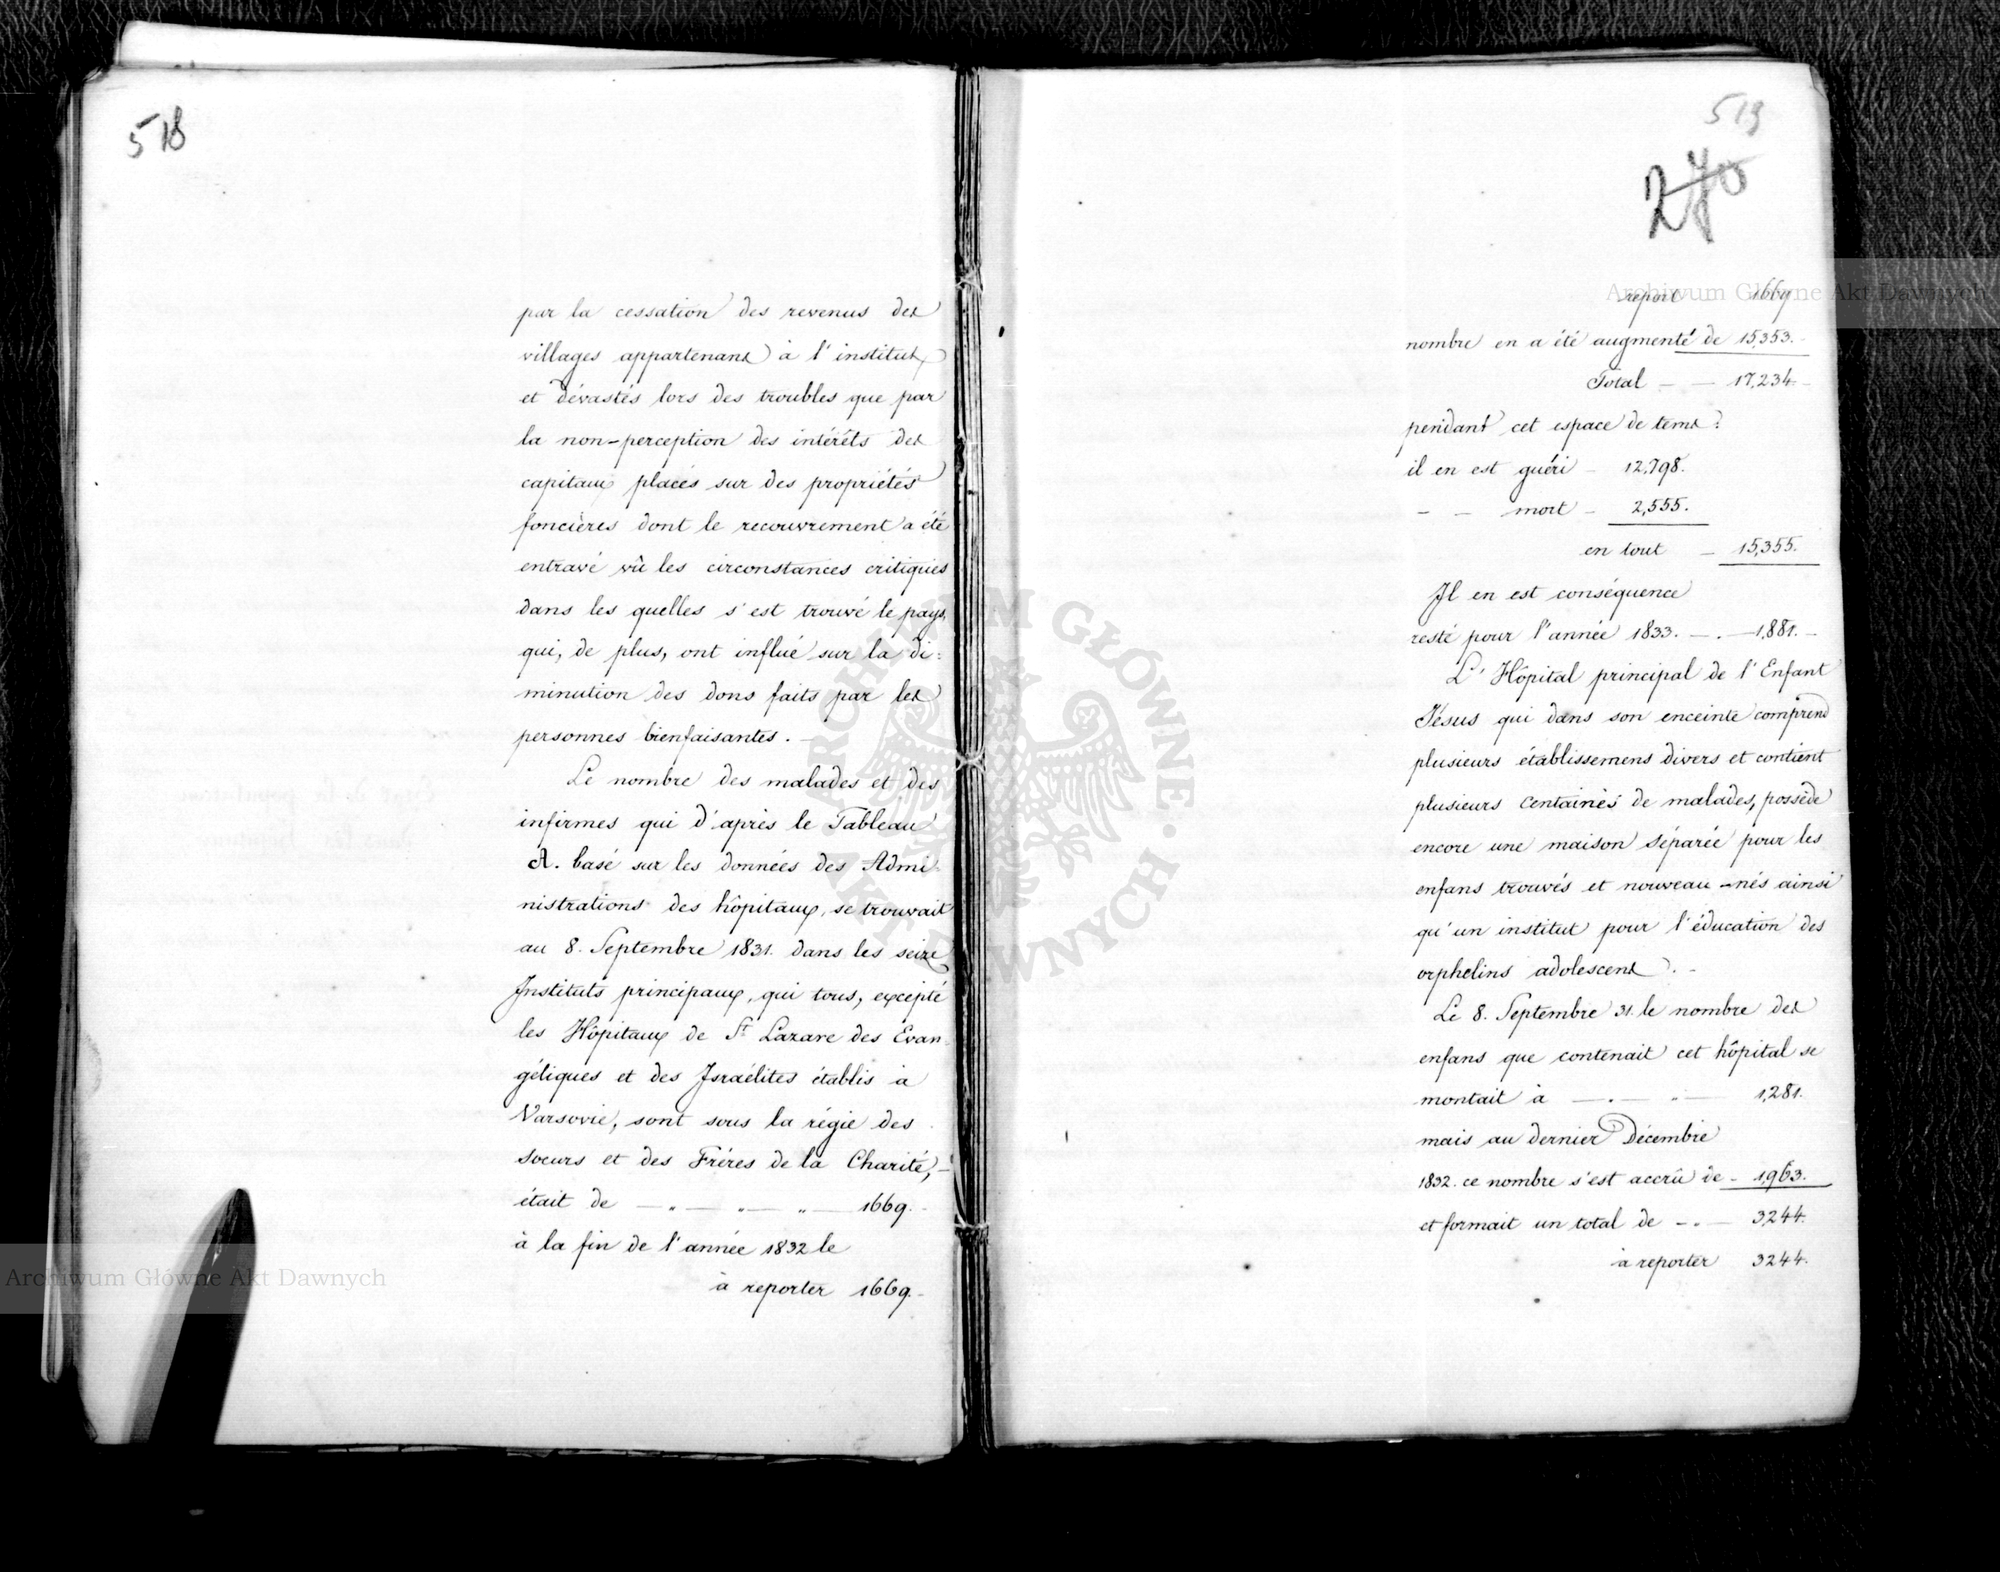 518
par la cessation des revenus des
villages appartenans à l'institut,
et dévastés lors des troubles que par
la non-perception des intérêts des
capitaux placés sur des propriétés
foncières dont le recouvrement a été
entravé vû les circonstances critiques
dans les quelles s'est trouvé le pays,
qui, de plus, ont influé sur la di:
minution des dons faits par les
personnes bienfaisantes. —
Le nombre des malades et des
infirmes qui d'après le Tableau
A. basé sur les données des Admi
nistrations des hôpitaux, se trouvait
au 8. Septembre 1831. dans les seize
Instituts principaux, qui tous, excepté
les Hôpitaux de St Lazare des Evan
géliques et des Israélites établis à
Varsovie, sont sous la régie des
soeurs et des Fréres de la Charité, —
était de — „ — „ — „ — 1669. -
à la fin de l'année 1832 le
à reporter 1669. -
519
270
report 1669
nombre en a été augmenté de 15,353. -
Total — — 17,234. -
pendant cet espace de tems:
il en est guéri - 12,798.
- - mort - 2,555.
en tout - 15,355.
Il en est conséquence
resté pour l'année 1833. — . — 1,881. -
L'Hôpital principal de l'Enfant
Jésus qui dans son enceinte comprend
plusieurs établissemens divers et contient
plusieurs centaines de malades, possède
encore une maison séparée pour les
enfans trouvés et nouveau-nés ainsi
qu'un institut pour l'éducation des
orphelins adolescens. -
Le 8. Septembre 31. le nombre des
enfans que contenait cet hôpital se
montait à — . — „ — 1,281.
mais au dernier Décembre
1832. ce nombre s'est accrû de - 1,963.
et formait un total de - . — 3244.
à reporter 3244.
Archiwum Główne Akt Dawnych
Archiwum Główne Akt Dawnych
ARCHIWUM GŁÓWNE · AKT DAWNYCH ·